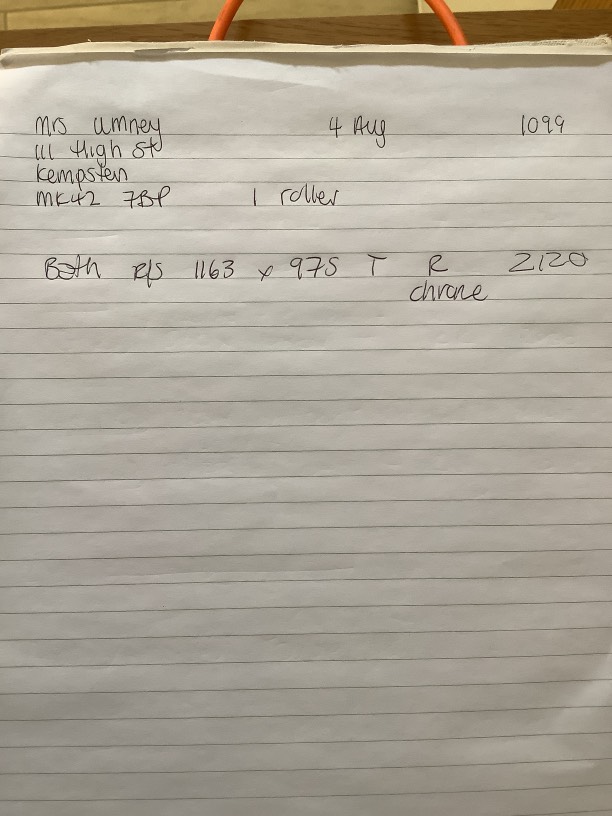 Mrs Umney 4 Aug 1099
111 High St
Kempsten
MK42 7BP 1 roller
Both R/S 1163 x 975 T R 2120
chrome